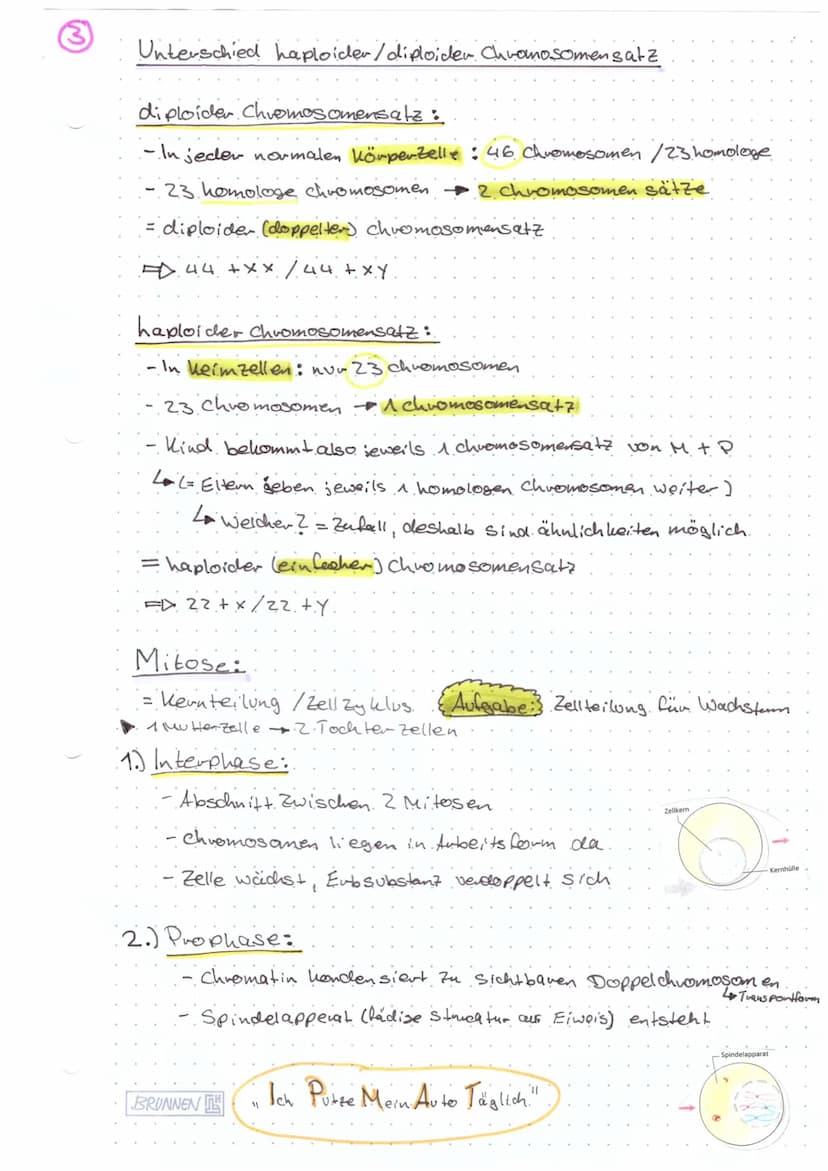 3
Unterschied haploider/diploider Chromosomensatz
diploider Chromosomensatz:
- In jeder normalen Körperzelle: 46 Chromosomen / 23 homologe
- 23 homologe Chromosomen → 2 Chromosomen sätze
= diploider (doppelter) Chromosomensatz
⇒ 44 + XX / 44 + XY
haploider Chromosomensatz:
- In Keimzellen: nur 23 Chromosomen
- 23 Chromosomen → 1 Chromosomensatz
- Kind bekommt also jeweils 1 Chromosomensatz von M + P
↳ (= Eltern geben jeweils 1 homologen Chromosomen weiter)
↳ Welcher? = Zufall, deshalb sind ähnlichkeiten möglich
= haploider (einfacher) Chromosomensatz
⇒ 22 + X / 22 + Y
Mitose:
= Kernteilung / Zellzyklus Aufgabe: Zellteilung für Wachstum
▶ 1 Mutterzelle → 2 Tochterzellen
1.) Interphase:
- Abschnitt zwischen 2 Mitosen
- Chromosomen liegen in Arbeitsform da
- Zelle wächst, Erbsubstanz verdoppelt sich
Zellkern
Kernhülle
2.) Prophase:
- Chromatin kondensiert zu sichtbaren Doppelchromosomen
↳ Transportform
- Spindelapperat (fädige Struktur aus Eiweis) entsteht
Spindelapparat
BRUNNEN
„Ich Putze Mein Auto Täglich."